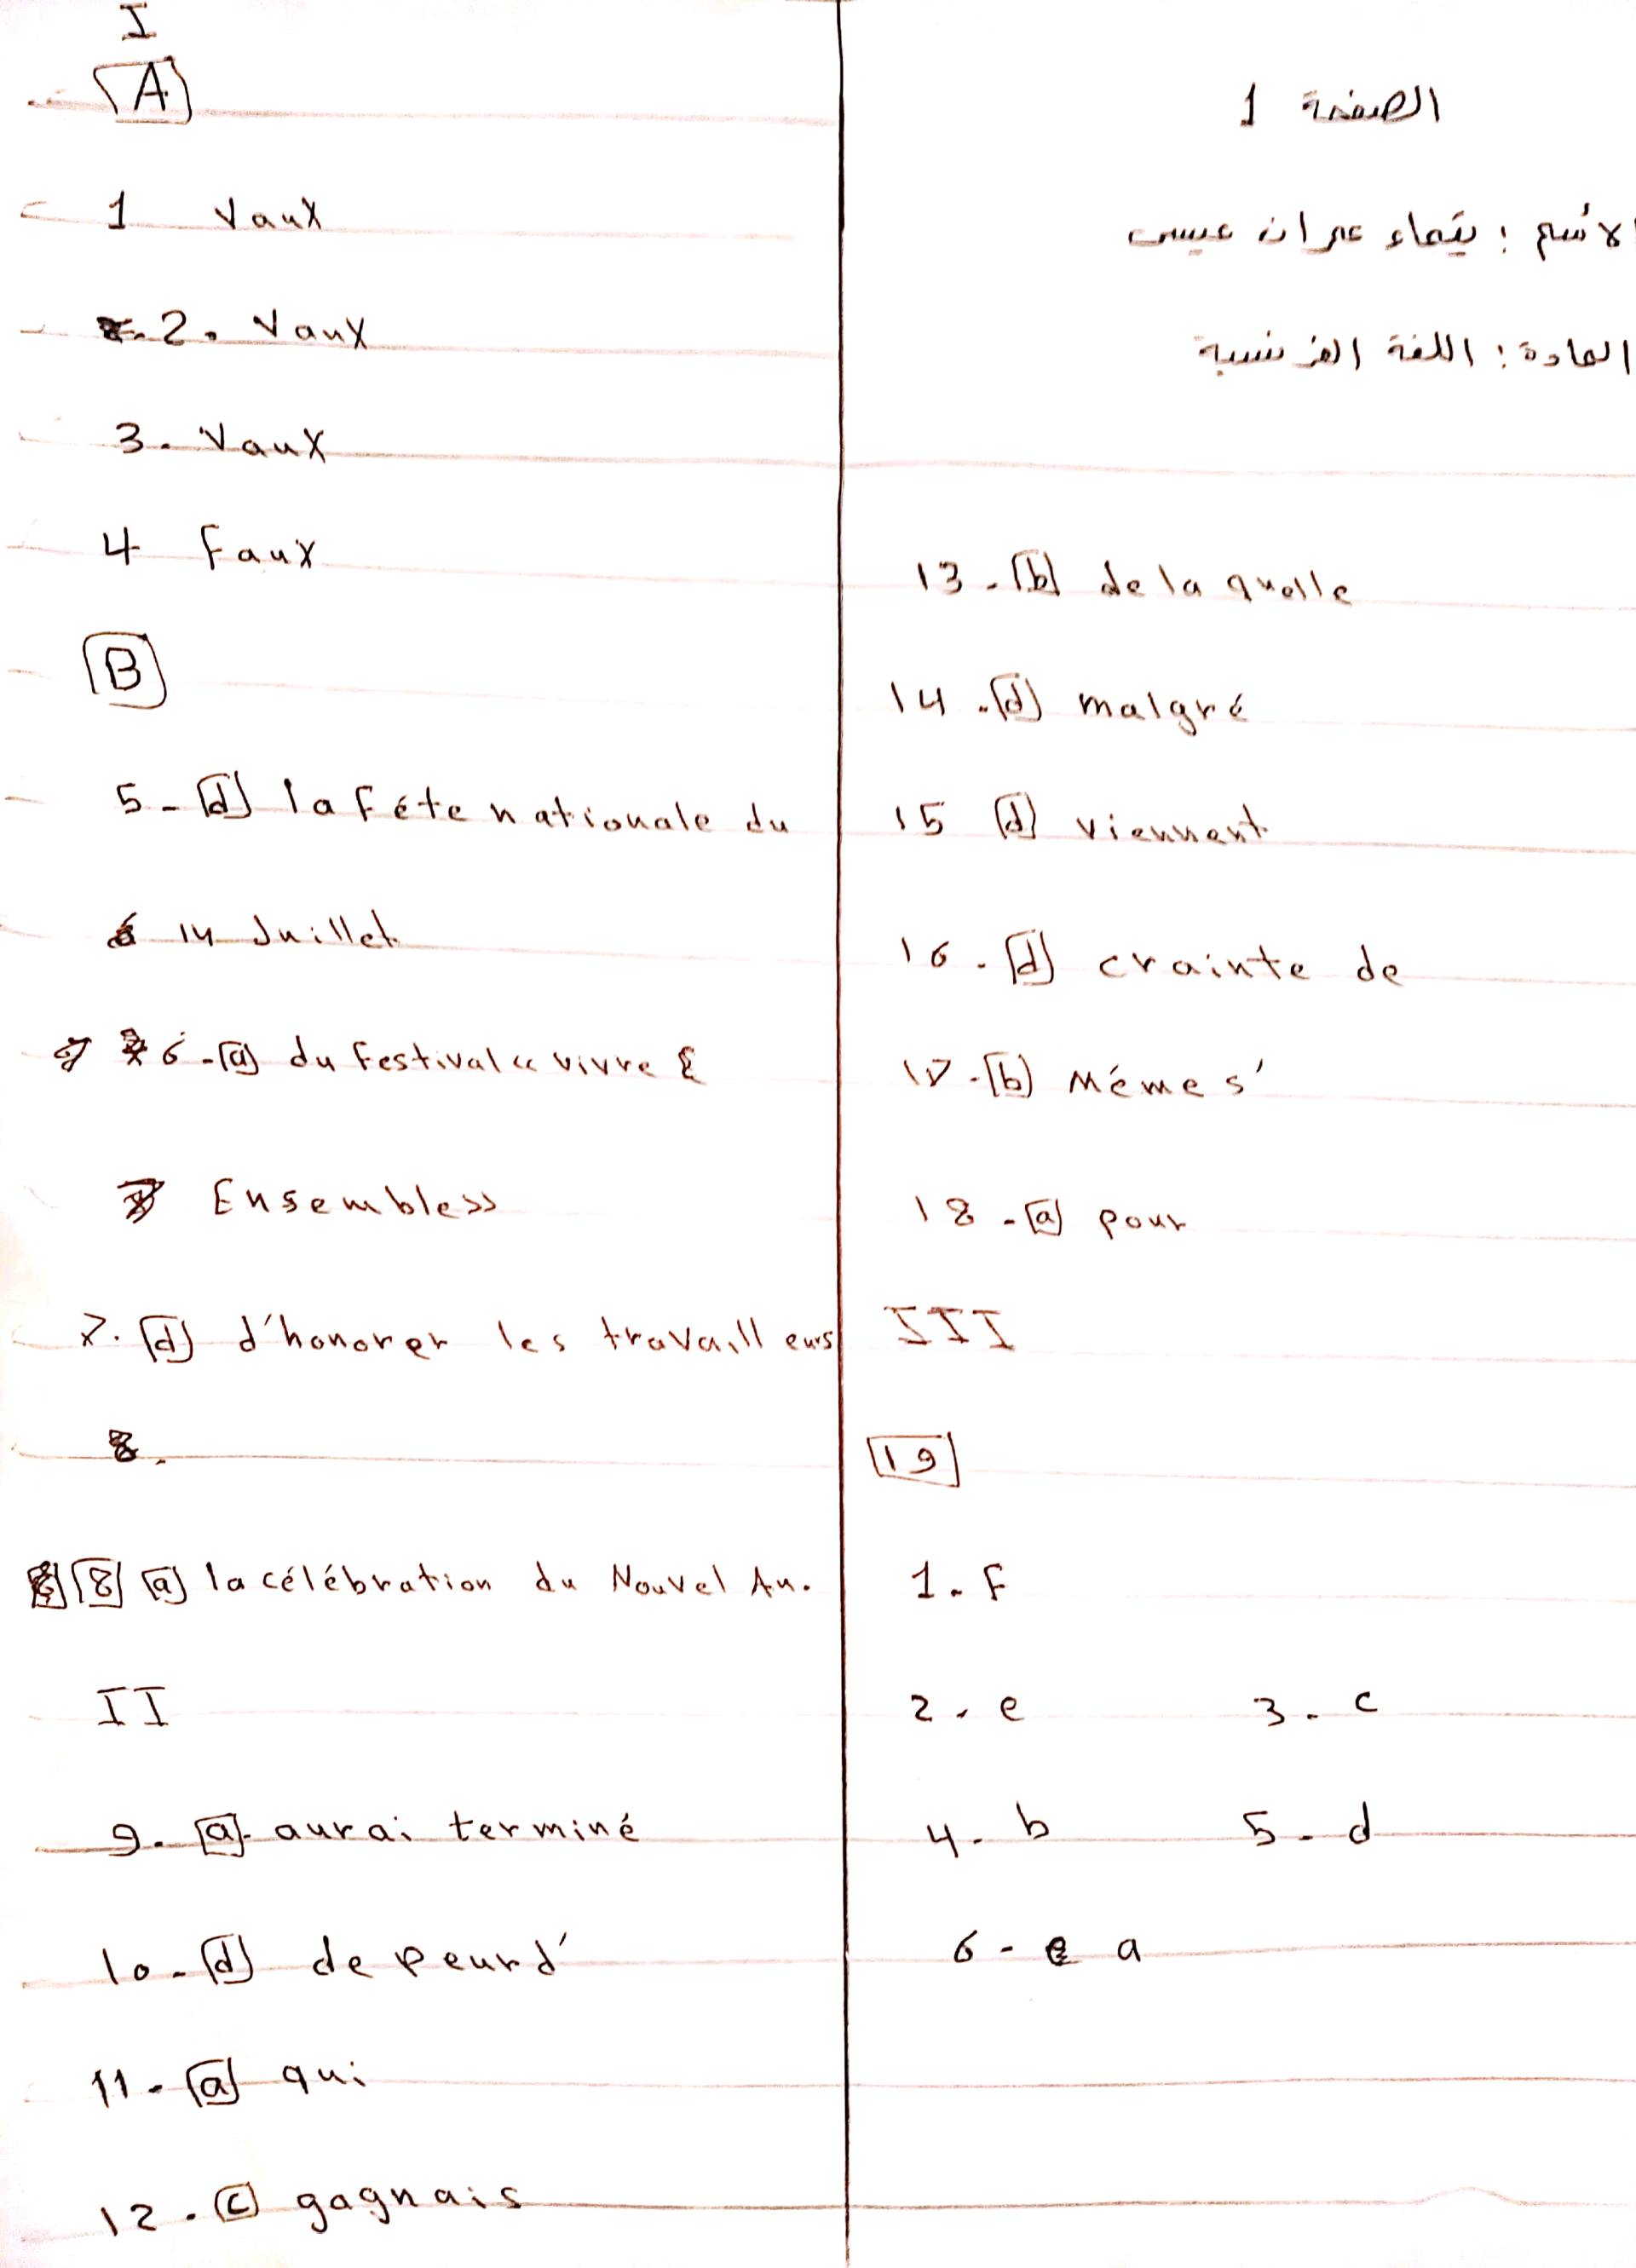 I
A
1 Vaux
2. Vaux
3. Vaux
4 Faux
B
5- d la Féte nationale du
14 Juillet
6- a du Festival « vivre
Ensemble»
7. d d'honorer les travailleurs
8.
8 a la célébration du Nouvel An.
II
9. a aurai terminé
10- d de peur d'
11- a qui
12. c gagnais
الصفحة 1
الأسم : عمران عيسى
المادة : اللغة الفرنسية
13- b de la quelle
14. d malgré
15 d viennent
16- d crainte de
17- b Méme s'
18- a pour
III
19
1. F
2. e 3. c
4- b 5- d
6- a